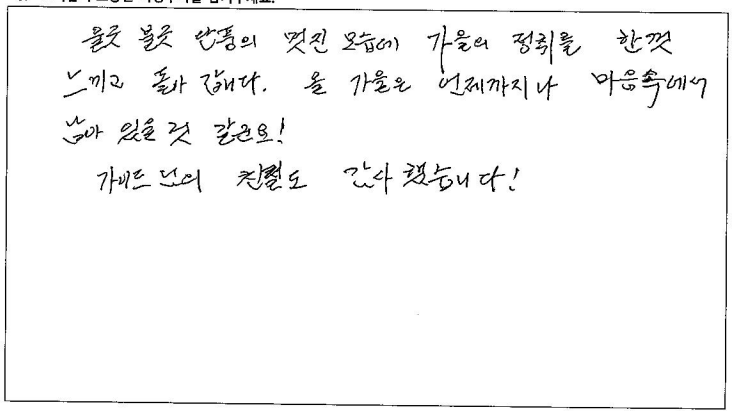 울긋 불긋 단풍의 멋진 모습에 가을의 정취를 한껏
느끼고 돌아 갑니다. 올 가을은 언제까지나 마음속에서
남아 있을 것 같군요!
가이드 님의 친절도 감사 했습니다!